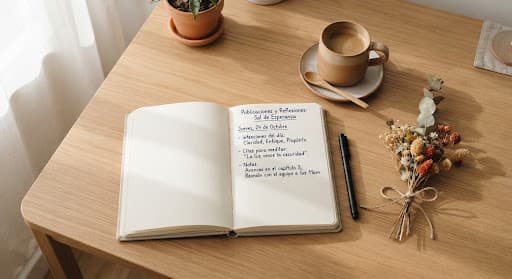 Publicaciones y Reflexiones:
Sol de Esperanza
Jueves, 24 de Octubre
- intenciones del día:
Claridad, Enfoque, Propósito
- Citas para meditar:
"La luz vence la oscuridad"
- Notas:
Avances en el capítulo 3,
Reunión con el equipo a las